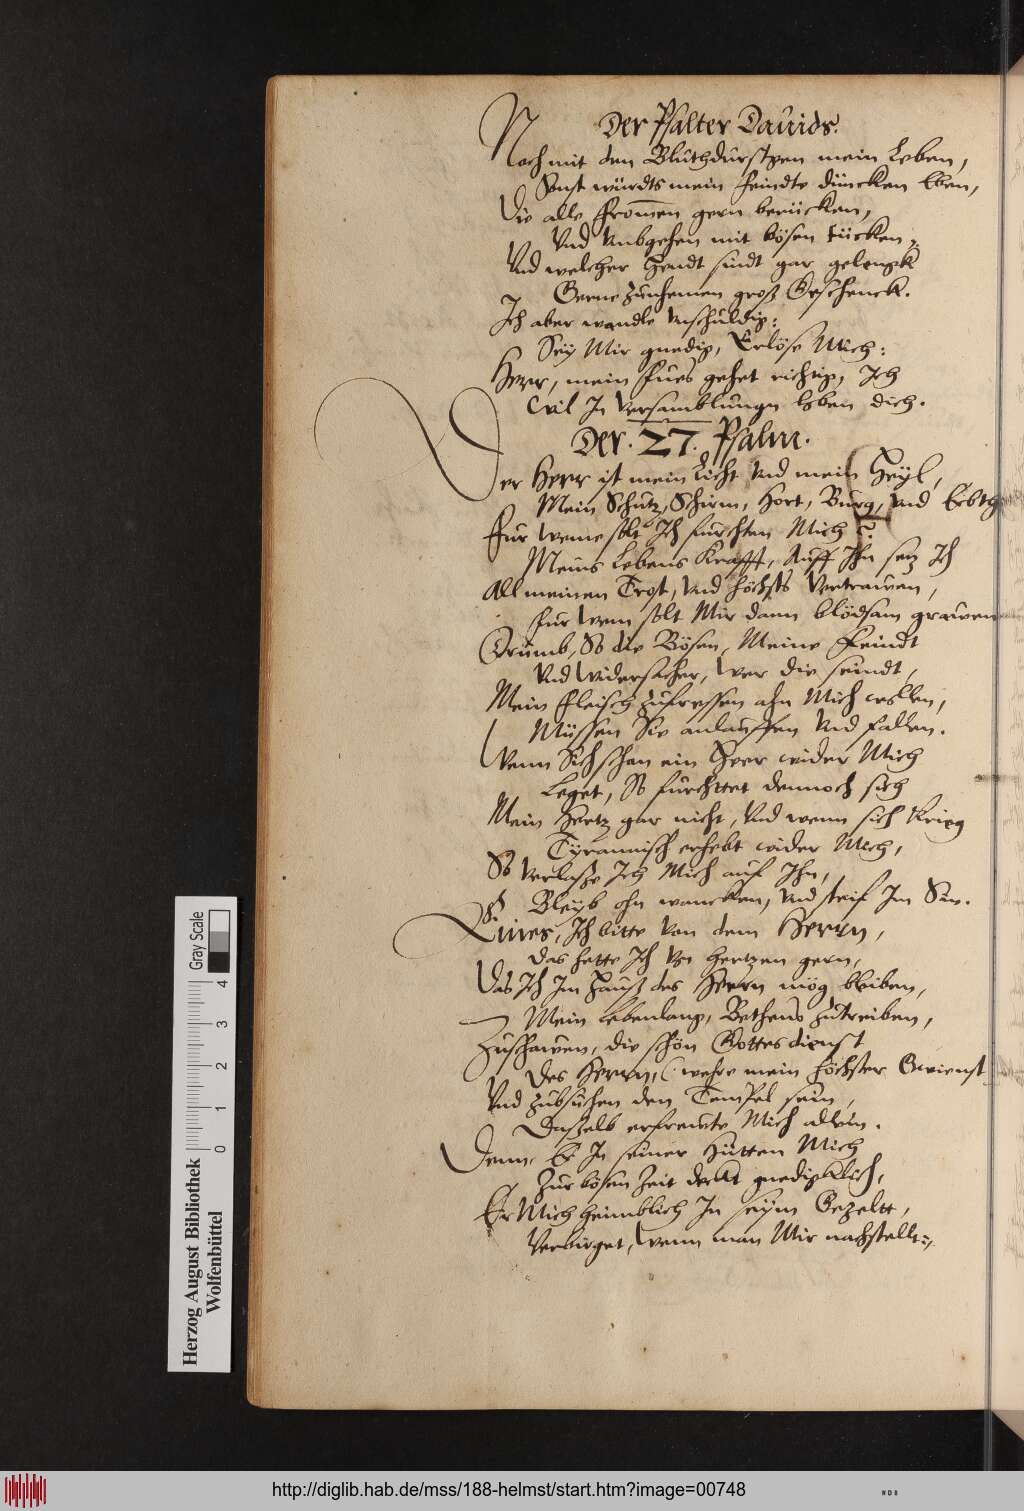 Der Psalter Dauids.
Noch mit den Bluthdurstgen mein Leben,
Sonst würdts mein feindte düncken Eben,
Die alle fromen gern berücken,
Vnd Vmbgehen mit bösen tücken,
Vnd welcher Hendt sindt gar gelenck
Gerne Zunhemen groß Geschenck.
Ich aber wandle Vnschuldig:
Sey Mir gnedig, Erlöse Mich:
Herr, mein fues gehet richtig, Ich
Wil In Versamblungn loben dich.
Der. 27. Psalm.
Der Herr ist mein Licht Vnd mein Heyl,
Mein Schutz, Schirm, Hort, Burg, Vnd
Fur Weme solt Ich furchten Mich ?
Meins Lebens Krafft, Auff Ihn setz Ich
All meinen Trost, Vnd höchsts Vertrawen,
Fur Wem solt Mir dann blödsam grawen
Drumb, So die Bösen, Meine Feindt
Vnd Widersacher, Wer die seindt,
Mein Fleisch Zufressen ahn Mich wollen,
Müssen Sie anlauffen Vnd fallen.
Wenn Sich schon ein Heer wider Mich
Leget, So furchtet dennoch sich
Mein Hertz gar nicht, Vnd wenn sich Krieg
Tyrannisch erhebt wider Mich,
So Verlaße Ich Mich auf Ihn,
Bleyb ohn wancken, Vnd steif Im Sin.
Eines, Ich bitte Von dem Herrn,
Das hette Ich Von Hertzen gern,
Das Ich Im Hauß des Herrn mög bleiben,
Mein Lebenlang, Bethens Zutreiben,
Zuschawen, die schön Gottesdienst
Des Herrn, (wehre mein höchster Gwienst
Vnd Zubsuchen den Tempel sein,
Daßelb erfreute Mich allein.
Denn Er In seiner Hütten Mich
Zur bösen Zeit deckt gnediglich,
Er Mich heimblich In seym Gezeltt,
Verbirget, Wenn man Mir nachstellt:
Herzog August Bibliothek
Wolfenbüttel
0 1 2 3 4
Gray Scale
http://diglib.hab.de/mss/188-helmst/start.htm?image=00748